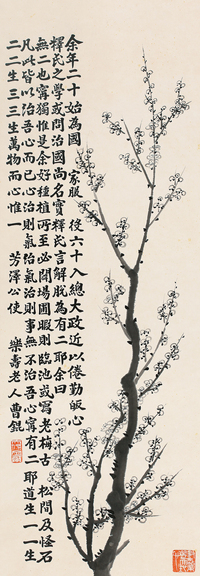 余年二十始為國家服役六十入總大政近以倦勤皈心
釋氏之學或問治國尚名實釋氏言解脫為有二耶余曰
無二也寧獨惟是余好種植所至必開場圃暇則臨池或寫老梅古松間及怪石
凡此皆以治吾心而已心治則氣治氣治則事無不治吾心寧有二耶道生一一生
二二生三三生萬物而心惟一
芳澤公使
樂壽老人曹錕